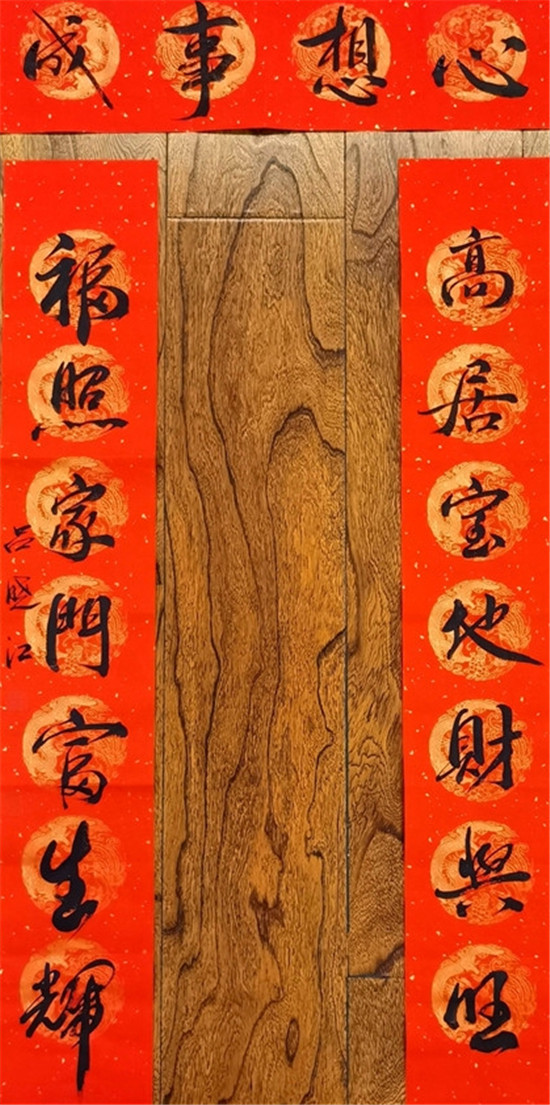 心想事成
高居宝地財興旺
福照家門富生輝
吕盛江